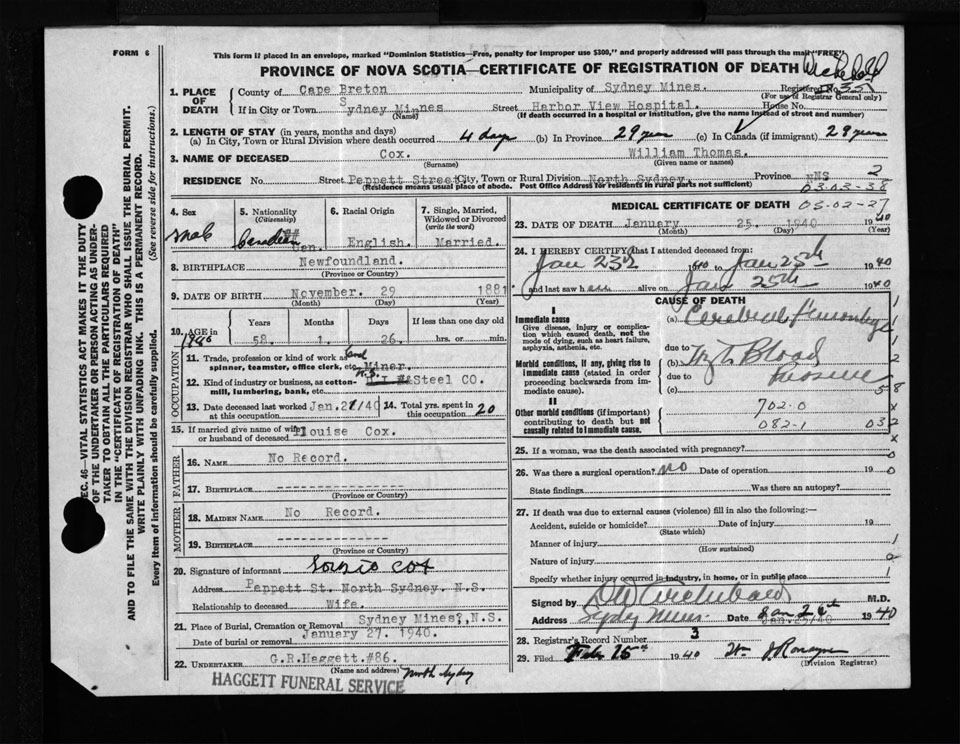 FORM 6
This form if placed in an envelope, marked "Dominion Statistics—Free, penalty for improper use $300," and properly addressed will pass through the mail "FREE"
PROVINCE OF NOVA SCOTIA—CERTIFICATE OF REGISTRATION OF DEATH
1. PLACE OF DEATH
County of Cape Breton Municipality of Sydney Mines. Registered No.
(For use of Registrar General only)
If in City or Town Sydney Mines Street Harbor View Hospital. House No.
(Name) (If death occurred in a hospital or institution, give the name instead of street and number)
2. LENGTH OF STAY (in years, months and days)
(a) In City, Town or Rural Division where death occurred 4 days (b) In Province 29 years (c) In Canada (if immigrant) 29 years
3. NAME OF DECEASED Cox. William Thomas.
(Surname) (Given name or names)
RESIDENCE No. Street Peppett Street City, Town or Rural Division North Sydney. Province NNS 2
(Residence means usual place of abode. Post Office Address for residents in rural parts not sufficient) 03-03-38
4. Sex Male
5. Nationality (Citizenship) Canadian Can.
6. Racial Origin English.
7. Single, Married, Widowed or Divorced (write the word) Married.
8. BIRTHPLACE Newfoundland.
(Province or Country)
9. DATE OF BIRTH November. 29 1881
(Month) (Day) (Year)
10. AGE in 1940 Years 58. Months 1. Days 26. If less than one day old hrs. or min.
OCCUPATION
11. Trade, profession or kind of work as spinner, teamster, office clerk, etc. Miner.
12. Kind of industry or business, as cotton-mill, lumbering, bank, etc. Steel CO.
13. Date deceased last worked at this occupation Jan. 21/40
14. Total yrs. spent in this occupation 20
15. If married give name of wife or husband of deceased Louise Cox.
FATHER
16. NAME No Record.
17. BIRTHPLACE ----------------
(Province or Country)
MOTHER
18. MAIDEN NAME No Record.
19. BIRTHPLACE ----------------
(Province or Country)
20. Signature of informant Cox
Address Peppett St. North Sydney. N.S.
Relationship to deceased Wife.
21. Place of Burial, Cremation or Removal Sydney Mines, N.S.
Date of burial or removal January 27. 1940.
22. UNDERTAKER G.R.Haggett.#86.
(Name and address) North Sydney
HAGGETT FUNERAL SERVICE
MEDICAL CERTIFICATE OF DEATH 03-02-27
23. DATE OF DEATH January 25. 1940
(Month) (Day) (Year)
24. I HEREBY CERTIFY that I attended deceased from:
Jan 23rd 1940 to Jan 25th 1940
and last saw h alive on Jan 25th 1940
CAUSE OF DEATH
I
Immediate cause (a) Cerebral Hemorrhage
Give disease, injury or complication which caused death, not the mode of dying, such as heart failure, asphyxia, asthenia, etc.
due to
Morbid conditions, if any, giving rise to immediate cause (stated in order proceeding backwards from immediate cause).
(b) Hy. T. Blood Pressure
due to
(c)
II
Other morbid conditions (if important) contributing to death but not causally related to immediate cause.
702-0
082-1
25. If a woman, was the death associated with pregnancy?
26. Was there a surgical operation? no Date of operation 19
State findings Was there an autopsy?
27. If death was due to external causes (violence) fill in also the following:—
Accident, suicide or homicide? Date of injury 19
(State which)
Manner of injury
(How sustained)
Nature of injury
Specify whether injury occurred in industry, in home, or in public place
Signed by Archibald M.D.
Address Sydney Mines Date Jan 26th Jan.25/40 1940
28. Registrar's Record Number 3
29. Filed Feb 15th 1940
(Division Registrar)
SEC. 46—VITAL STATISTICS ACT MAKES IT THE DUTY OF THE UNDERTAKER OR PERSON ACTING AS UNDERTAKER TO OBTAIN ALL THE PARTICULARS REQUIRED IN THE "CERTIFICATE OF REGISTRATION OF DEATH" AND TO FILE THE SAME WITH THE DIVISION REGISTRAR WHO SHALL ISSUE THE BURIAL PERMIT.
WRITE PLAINLY WITH UNFADING INK. THIS IS A PERMANENT RECORD.
Every item of information should be carefully supplied. (See reverse side for instructions.)